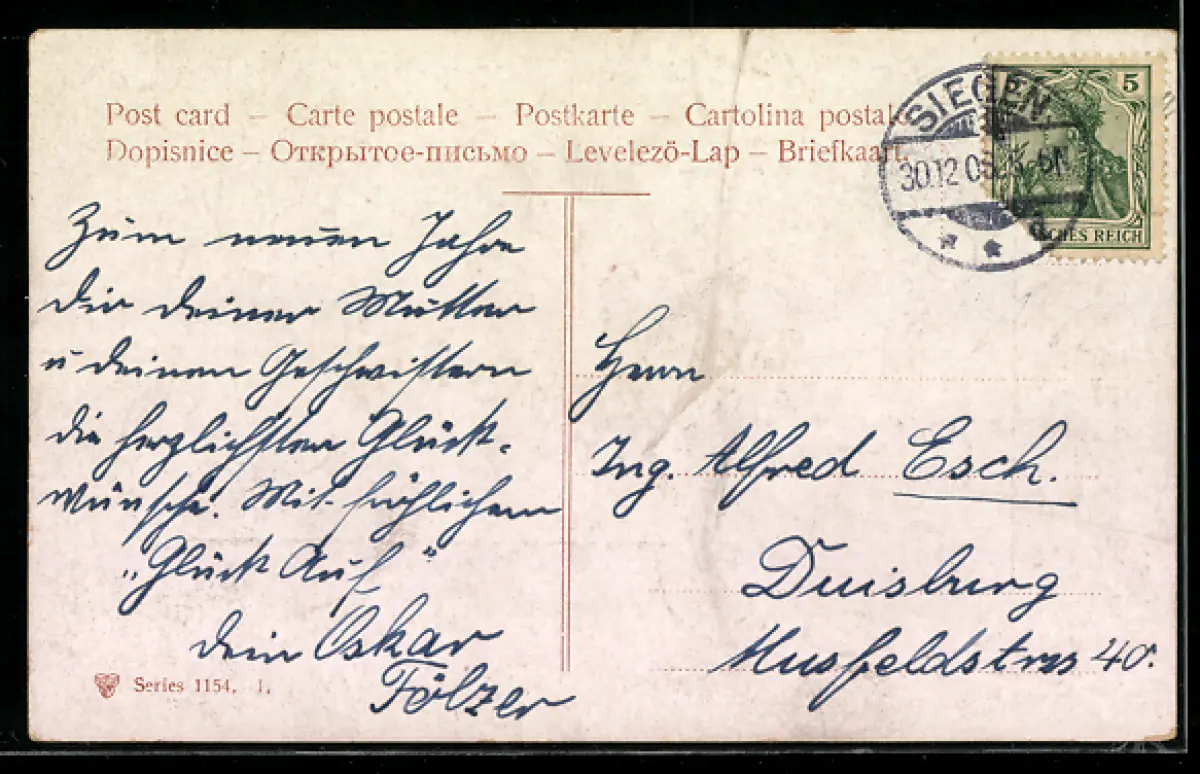 Post card – Carte postale – Postkarte – Cartolina postale
Dopisnice – Открытое-письмо – Levelezö-Lap – Briefkaart.
SIEGEN
30.12 05. 6N
5
SCHES REICH
Zum neuen Jahre
dir deiner Mutter
u deinen Geschwistern
die herzlichsten Glück-
wünsche. Mit fröhlichem
„Glück Auf"
dein Oskar
Fölzer
Herrn
Ing. Alfred Esch.
Duisburg
Musfeldstras 40.
Series 1154. 1.